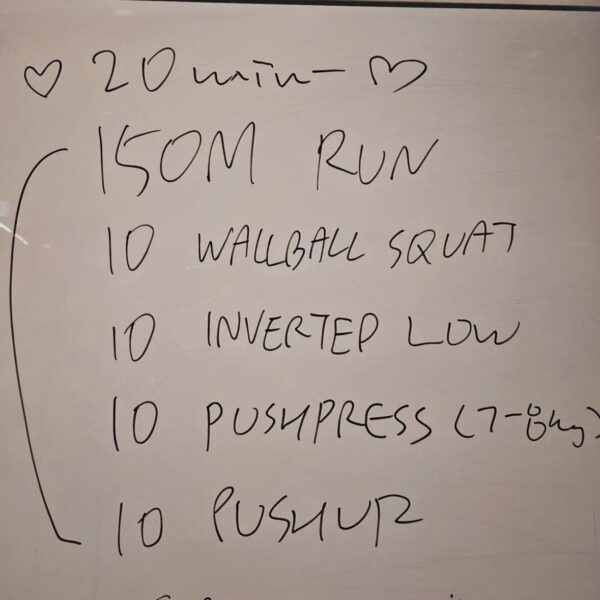 ♡ 20 min- ♡
150M RUN
10 WALLBALL SQUAT
10 INVERTED LOW
10 PUSHPRESS (7-8kg)
10 PUSHUP